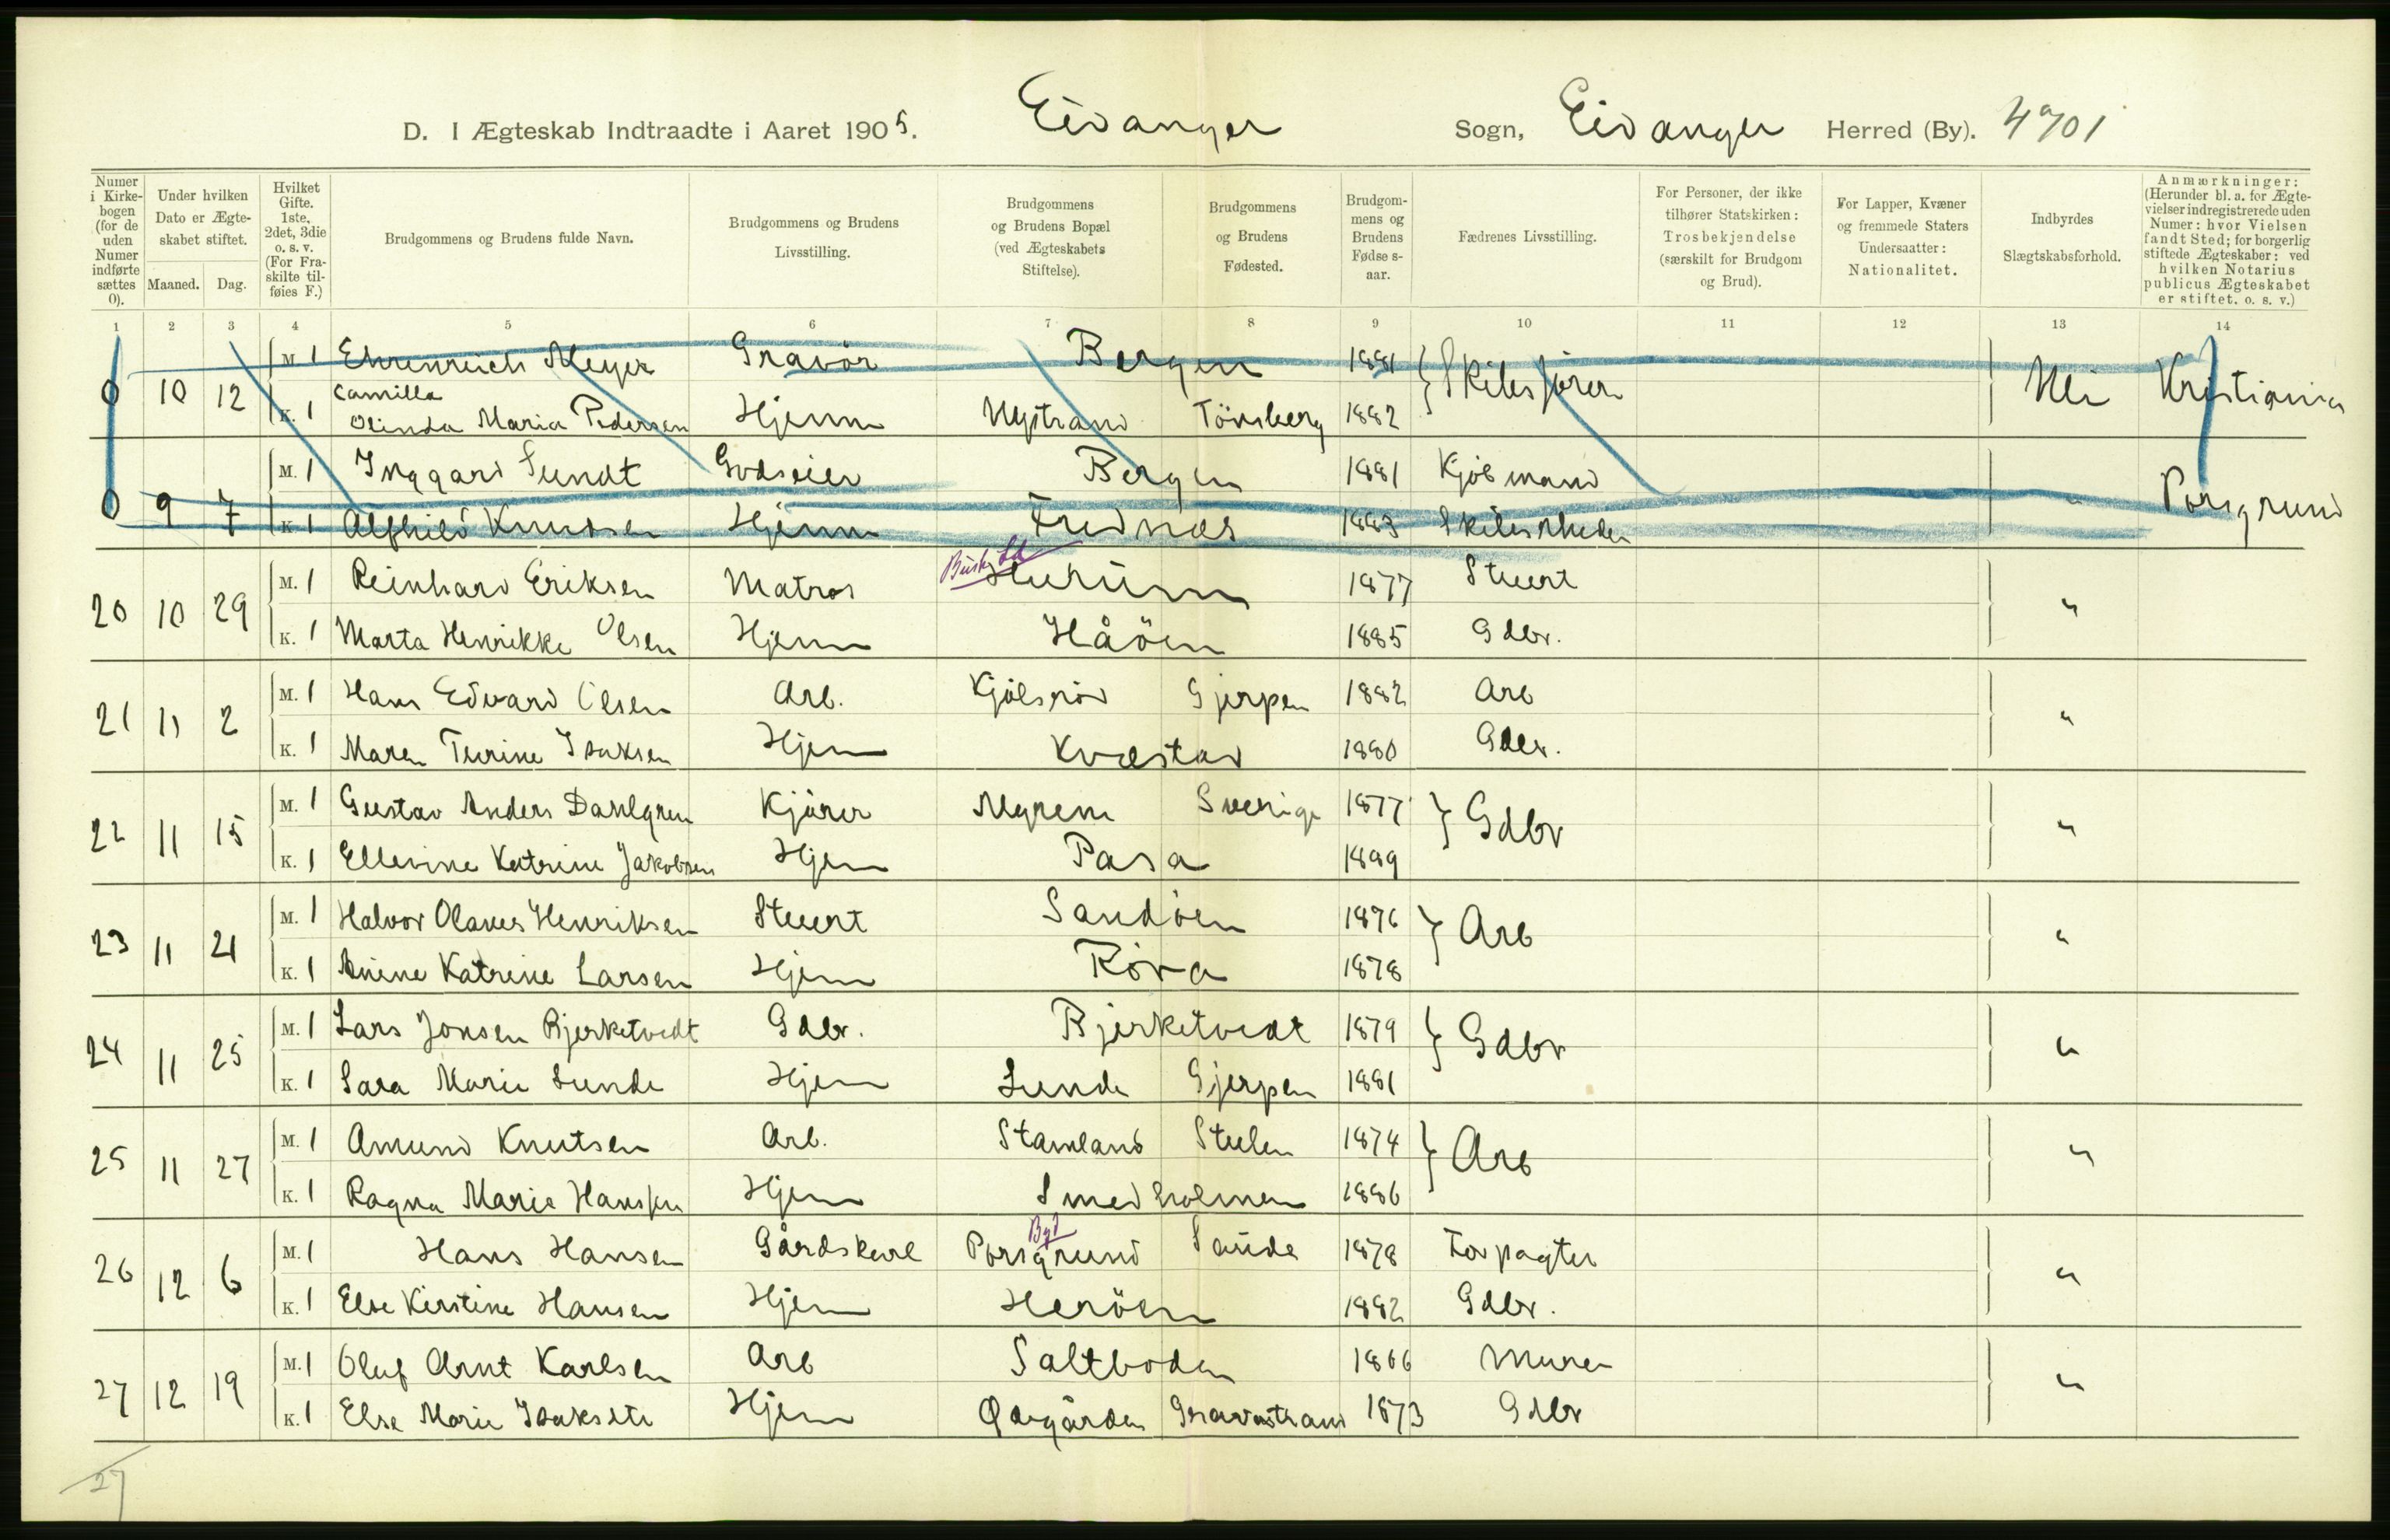 D. I Ægteskab Indtraadte i Aaret 1905. Eidanger Sogn, Eidanger Herred (By). 4701
Numer i Kirkebogen (for de uden Numer indførte sættes 0).
Under hvilken Dato er Ægteskabet stiftet.
Maaned. Dag.
Hvilket Gifte. 1ste, 2det, 3die o. s. v. (For Fraskilte tilføies F.)
Brudgommens og Brudens fulde Navn.
Brudgommens og Brudens Livsstilling.
Brudgommens og Brudens Bopæl (ved Ægteskabets Stiftelse).
Brudgommens og Brudens Fødested.
Brudgommens og Brudens Fødselsaar.
Fædrenes Livsstilling.
For Personer, der ikke tilhører Statskirken: Trosbekjendelse (særskilt for Brudgom og Brud).
For Lapper, Kvæner og fremmede Staters Undersaatter: Nationalitet.
Indbyrdes Slægtskabsforhold.
Anmærkninger: (Herunder bl. a. for Ægtevielser indregistrerede uden Numer: hvor Vielsen fandt Sted; for borgerlig stiftede Ægteskaber: ved hvilken Notarius publicus Ægteskabet er stiftet. o. s. v.)
1 2 3 4 5 6 7 8 9 10 11 12 13 14
M. 1 Ehrenreich Meyer Gravör Bergen 1881 Skibsfører
0 10 12 Nei Kristiania
K. 1 Camilla Olinda Maria Pedersen Hjem Nystrand Tönsberg 1882
M. 1 Inggard Sundt Godseier Bergen 1881 Kjöbmand
0 9 7 " Porsgrund
K. 1 Alfhild Knudsen Hjem Frednes 1883 Skibsrheder
M. 1 Reinhard Eriksen Matros Hurum 1877 Stuert
20 10 29 "
K. 1 Marta Henrikke Olsen Hjem Håöen 1885 Gdbr.
M. 1 Hans Edvard Olsen Arb. Kjölsröd Gjerpen 1882 Arb
21 11 2 "
K. 1 Maren Turine Isaksen Hjem Kvæstad 1880 Gdbr.
M. 1 Gustav Anders Dahlgren Kjörer Myrene Sverige 1877 Gdbr
22 11 15 "
K. 1 Ellevine Katrine Jakobsen Hjem Pasa 1889
M. 1 Halvor Olaves Henriksen Stuert Sandöen 1876 Arb
23 11 21 "
K. 1 Anine Katrine Larsen Hjem Röra 1878
M. 1 Lars Jonsen Bjerketvedt Gdbr. Bjerketvedt 1879 Gdbr
24 11 25 "
K. 1 Sara Marie Lunde Hjem Lunde Gjerpen 1881
M. 1 Amund Knutsen Arb. Stamland 1874 Arb
25 11 27 "
K. 1 Ragna Marie Hansen Hjem Smedholmen 1886
M. 1 Hans Hansen Gårdskarl Porsgrund Byd Saude 1878 Forpagter
26 12 6 "
K. 1 Else Kirstine Hansen Hjem Heröen 1882 Gdbr.
M. 1 Oluf Arnt Karlsen Arb Saltboden 1866 Murer
27 12 19 "
K. 1 Else Marie Isaksdtr Hjem Ødegården 1873 Gdbr
27